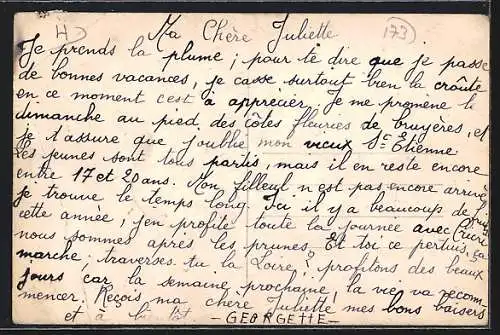 H
173
Ma Chère Juliette
Je prends la plume ; pour te dire que je passe
de bonnes vacances, je casse surtout bien la croûte
en ce moment c'est à apprecier. Je me promène le
dimanche au pied des côtes fleuries de bruyères, et
je t'assure que j'oublie mon vieux St Etienne
les jeunes sont tous partis, mais il en reste encore
entre 17 et 20 ans. Mon filleul n'est pas encore arrivé
je trouve le temps long. Ici il y a beaucoup de fruits
cette année, j'en profite toute la journée avec
nous sommes après les prunes. Et toi ce pertuis, ça
marche, traverses-tu la Loire, profitons des beaux
jours car la semaine prochaine la vie va recom
mencer. Reçois ma chère Juliette mes bons baisers
et à bientôt - GEORGETTE -